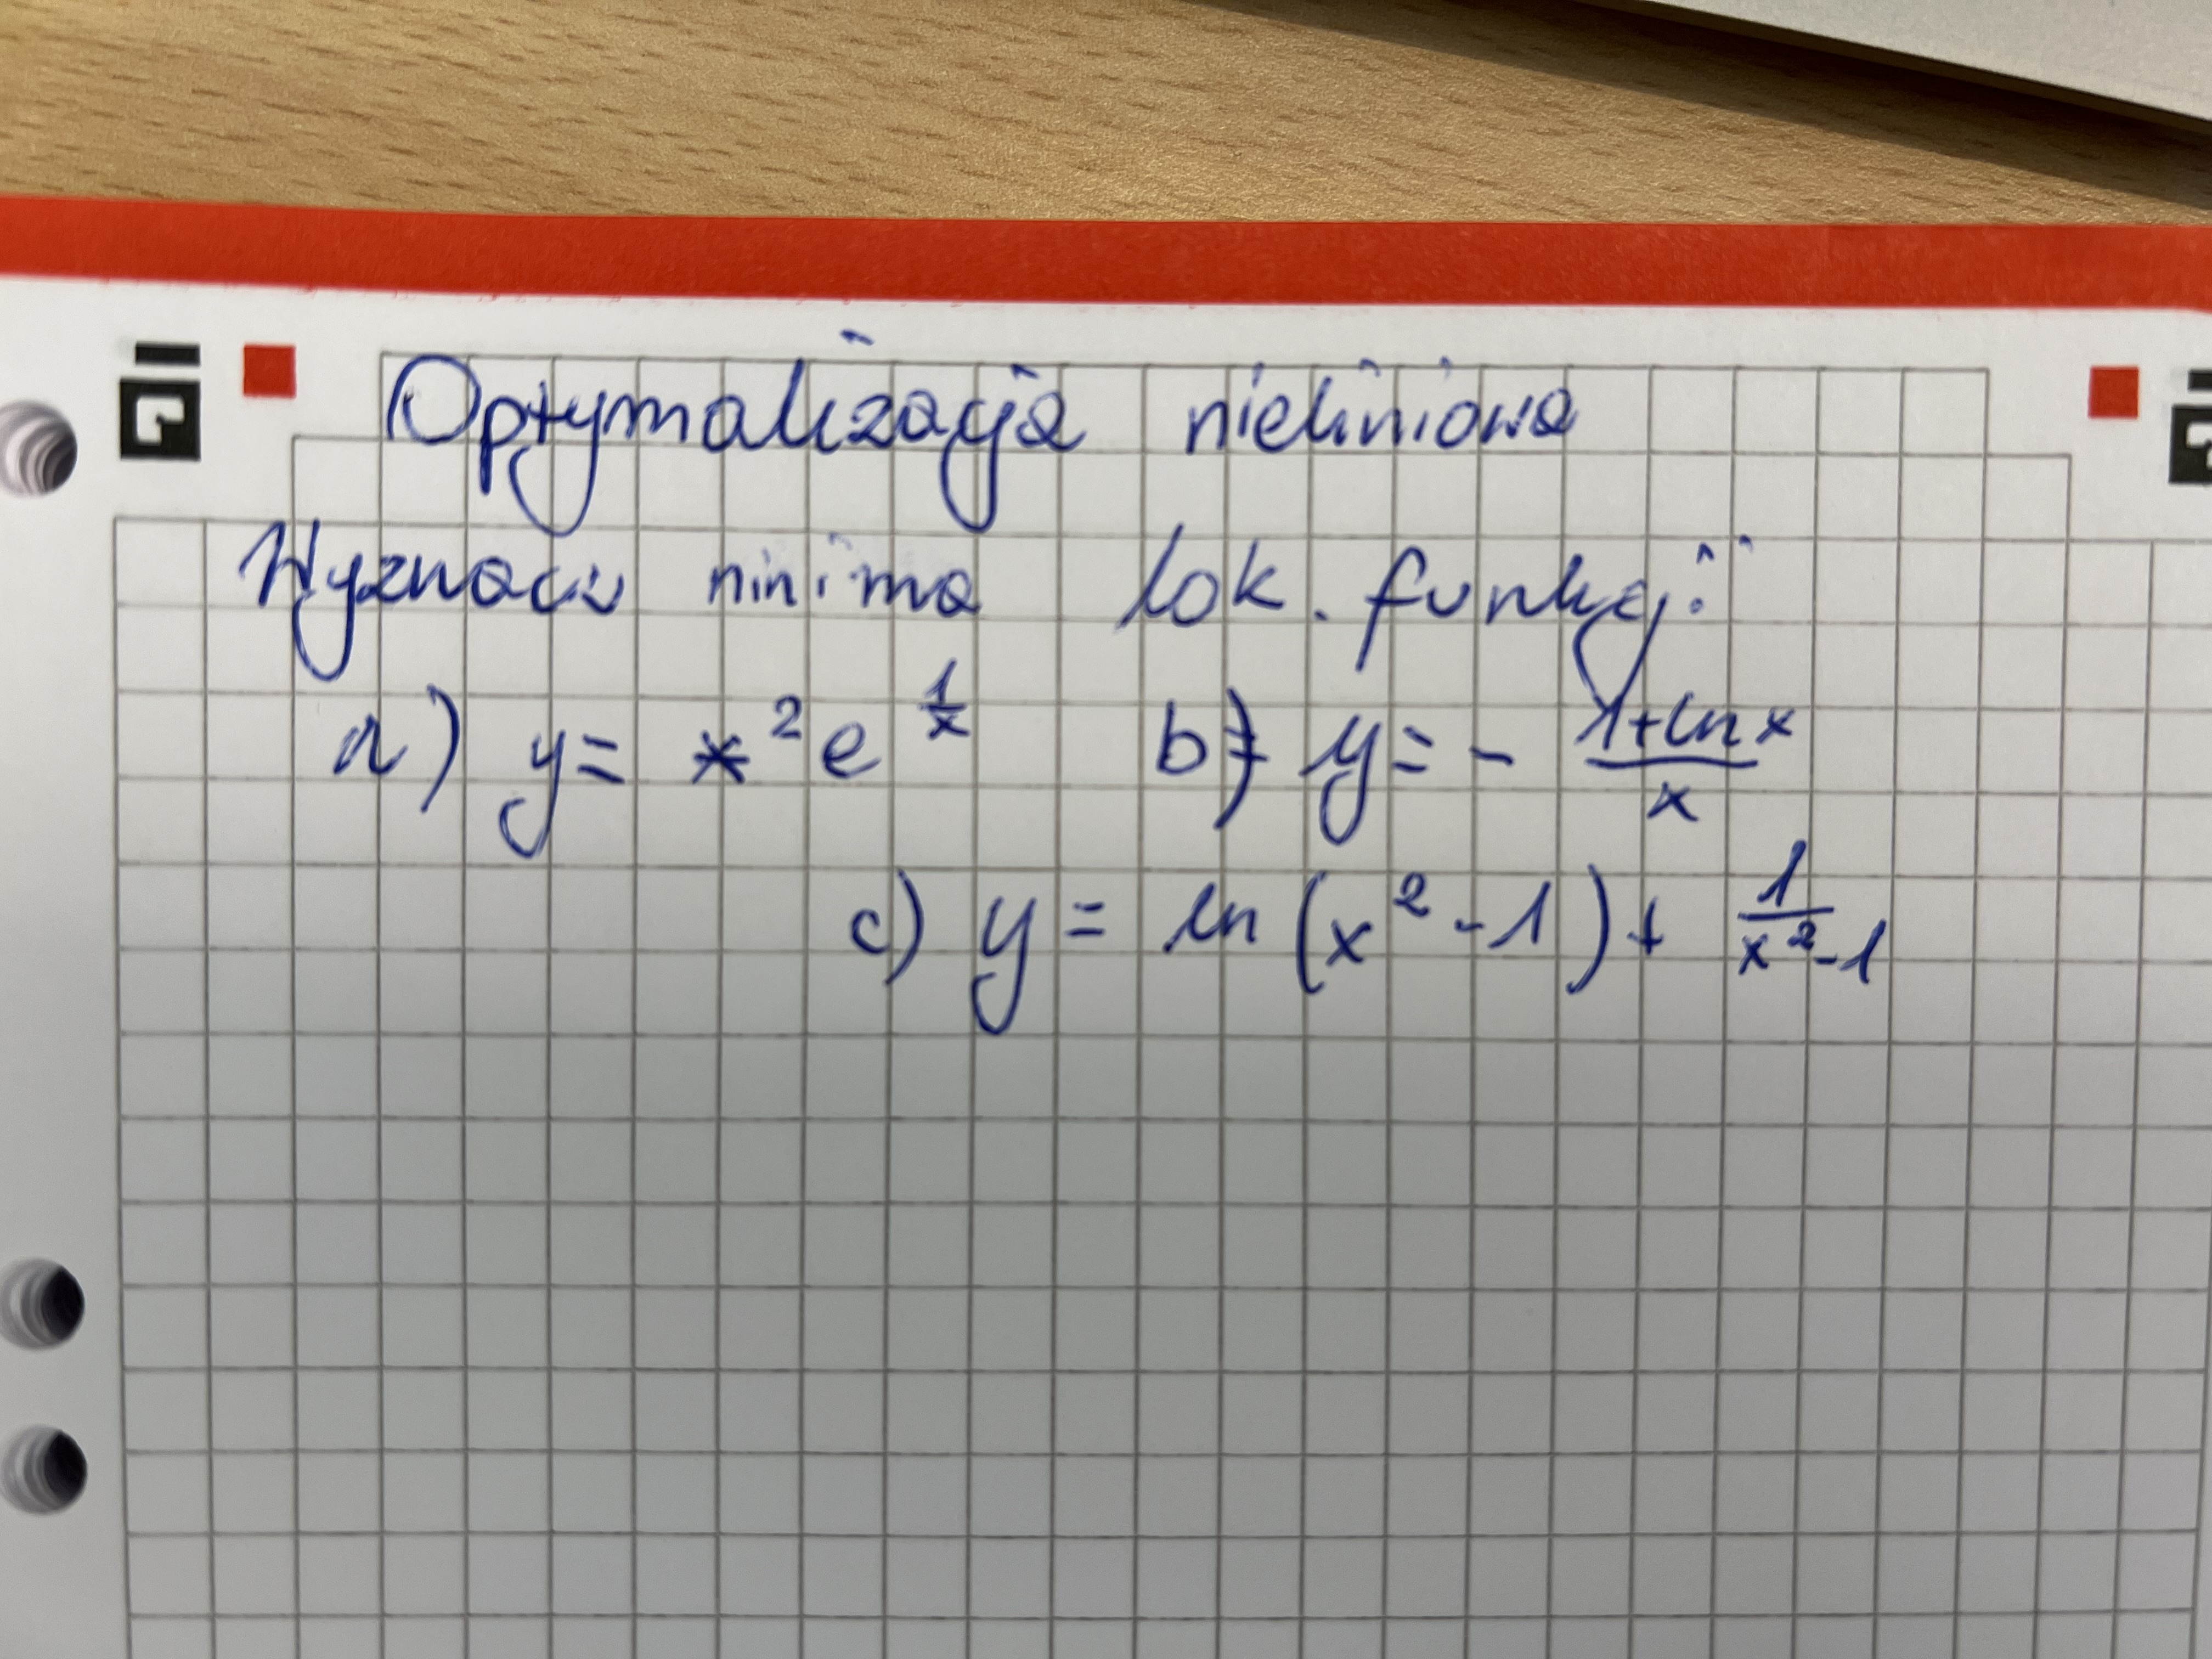 Optymalizacja nieliniowa
Wyznacz minima lok. funkcji:
a) y = x² e^(1/x) b) y = - (1+ln x)/x
c) y = ln (x² - 1) + 1/(x² - 1)